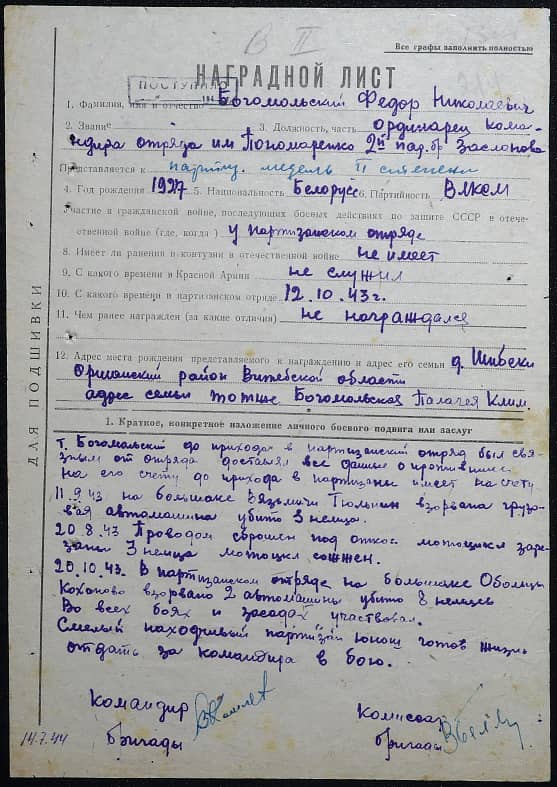 В II
Все графы заполнять полностью
ПОСТУПИЛО
НАГРАДНОЙ ЛИСТ
1. Фамилия, имя и отчество Богомольский Федор Николаевич
2. Звание 3. Должность, часть ординарец кома-
ндира отряда им Пономаренко 2й пар. бр Заслонова
Представляется к партиз. медель II степени
4. Год рождения 1927 5. Национальность Белорусс 6. Партийность ВЛКСМ
Участие в гражданской войне, последующих боевых действиях по защите СССР и отече-
ственной войне (где, когда) у партизанском отряде
8. Имеет ли ранения и контузии в отечественной войне не имеет
9. С какого времени в Красной Армии не служил
10. С какого времени в партизанском отряде 12.10.43г.
11. Чем ранее награжден (за какие отличия) не награждался
12. Адрес места рождения представляемого к награждению и адрес его семьи д. Шибеки
Оршанский район Витебской области
адрес семьи тотже Богомольская Палагея Клим.
ДЛЯ ПОДШИВКИ
1. Краткое, конкретное изложение личного боевого подвига или заслуг
т. Богомольский до прихода в партизанский отряд был свя-
зным от отряда доставлял все данные о противнике
на его счету до прихода в партизаны имеет на счету
11.9.43 на большаке Вязьмичи Тюльнин взорвана грузо-
вая автомашина убито 3 немца.
20.8.43 Проводом сброшен под откос мотоцикл заре-
заны 3 немца мотоцкл сожжен.
20.10.43. В партизанском отряде на большаке Обольцы
Коханово взорвано 2 автомашины убито 8 немцев
Во всех боях и засадах участвовал.
Смелый находчивый партизан юноша готов жизнь
отдать за командира в бою.
Командир Комиссар
бригады бригады
14.7.44